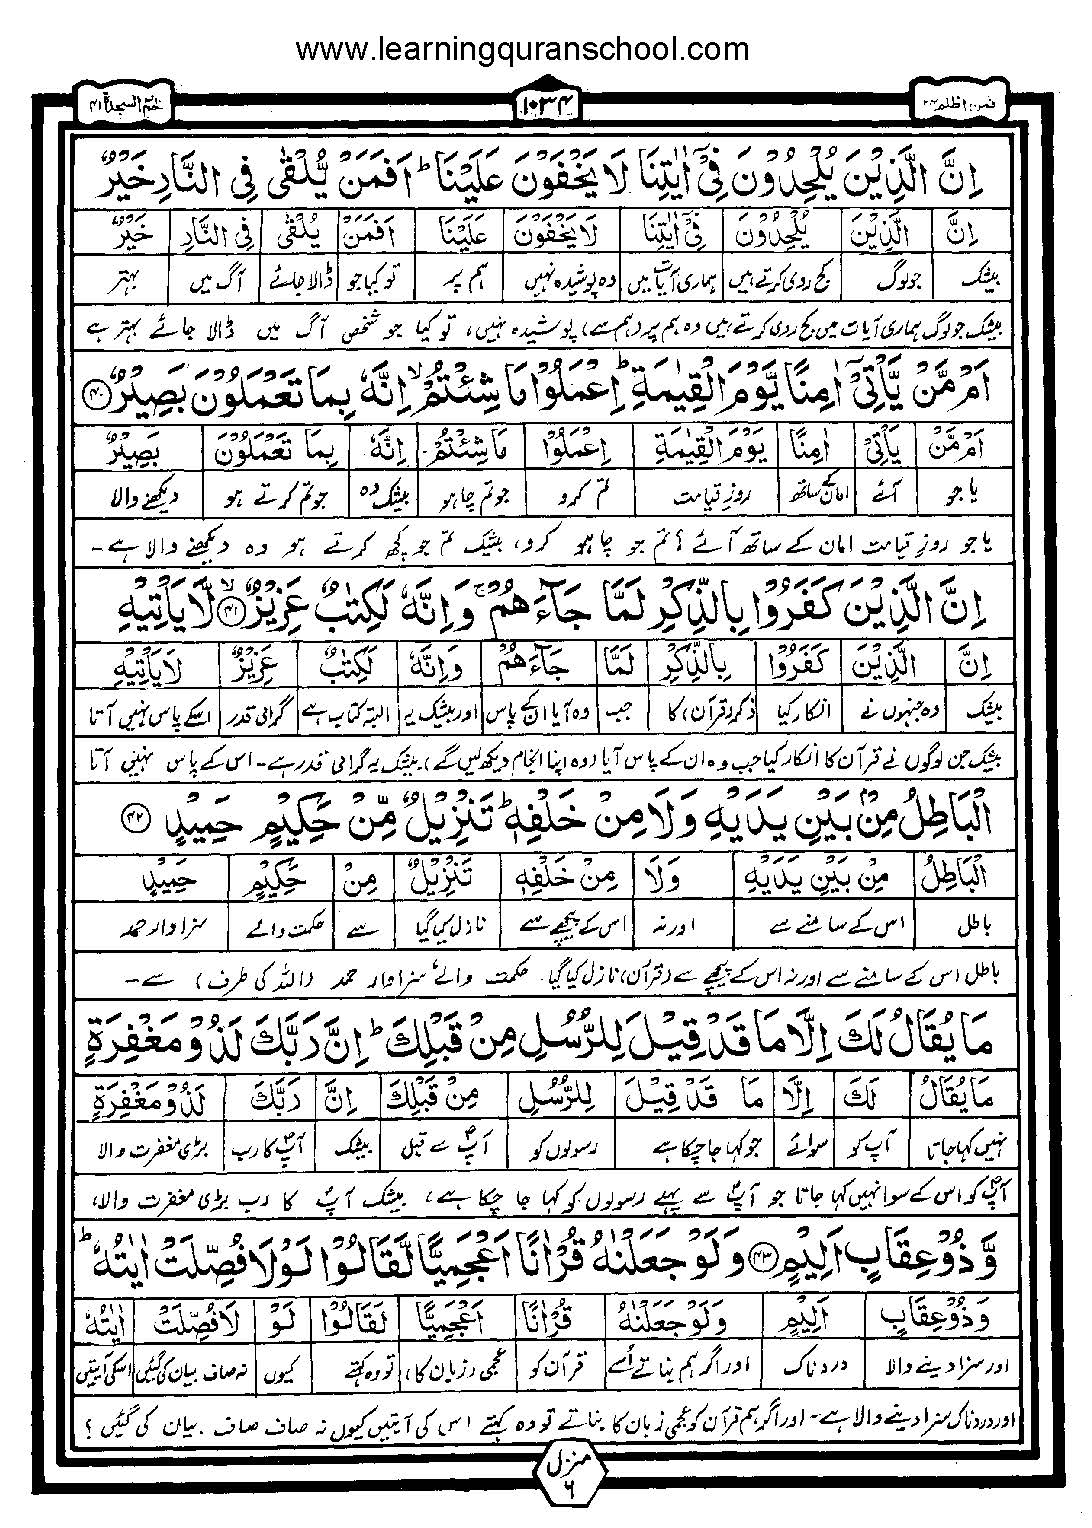 www.learningquranschool.com
فمن اظلم ۲۴
۱۰۳۴
حٰمٓ السجدة ۴۱
اِنَّ الَّذِيْنَ يُلْحِدُوْنَ فِىْٓ اٰيٰتِنَا لَا يَخْفَوْنَ عَلَيْنَا ؕ اَفَمَنْ يُّلْقٰى فِى النَّارِ خَيْرٌ
اِنَّ الَّذِيْنَ يُلْحِدُوْنَ فِىْٓ اٰيٰتِنَا لَا يَخْفَوْنَ عَلَيْنَا اَفَمَنْ يُلْقٰى فِى النَّارِ خَيْرٌ
بیشک جو لوگ کج روی کرتے ہیں ہماری آیات میں وہ پوشیدہ نہیں ہم پر تو کیا جو ڈالا جائے آگ میں بہتر
بیشک جو لوگ ہماری آیات میں کج روی کرتے ہیں وہ ہم پر (ہم سے) پوشیدہ نہیں، تو کیا جو شخص آگ میں ڈالا جائے بہتر ہے
اَمْ مَّنْ يَّاْتِىْٓ اٰمِنًا يَّوْمَ الْقِيٰمَةِ ؕ اِعْمَلُوْا مَا شِئْتُمْ ۙ اِنَّهٗ بِمَا تَعْمَلُوْنَ بَصِيْرٌ ۴۰
اَمْ مَّنْ يَّاْتِىْٓ اٰمِنًا يَوْمَ الْقِيٰمَةِ اِعْمَلُوْا مَا شِئْتُمْ اِنَّهٗ بِمَا تَعْمَلُوْنَ بَصِيْرٌ
یا جو آئے امان کے ساتھ روزِ قیامت تم کرو جو تم چاہو بیشک وہ جو تم کرتے ہو دیکھنے والا
یا جو روزِ قیامت امان کے ساتھ آئے؟ تم جو چاہو کرو، بیشک تم جو کچھ کرتے ہو وہ دیکھنے والا ہے۔
اِنَّ الَّذِيْنَ كَفَرُوْا بِالذِّكْرِ لَمَّا جَآءَهُمْ ۚ وَاِنَّهٗ لَكِتٰبٌ عَزِيْزٌ ۙ ۴۱ لَّا يَاْتِيْهِ
اِنَّ الَّذِيْنَ كَفَرُوْا بِالذِّكْرِ لَمَّا جَآءَهُمْ وَاِنَّهٗ لَكِتٰبٌ عَزِيْزٌ لَا يَاْتِيْهِ
بیشک وہ جنہوں نے انکار کیا ذکر (قرآن) کا جب وہ آیا ان کے پاس اور بیشک یہ البتہ کتاب ہے گرامی قدر اسکے پاس نہیں آتا
بیشک جن لوگوں نے قرآن کا انکار کیا جب وہ ان کے پاس آیا (وہ اپنا انجام دیکھ لیں گے)، بیشک یہ گرامی قدر ہے۔ اس کے پاس نہیں آتا
الْبَاطِلُ مِنْۢ بَيْنِ يَدَيْهِ وَلَا مِنْ خَلْفِهٖ ؕ تَنْزِيْلٌ مِّنْ حَكِيْمٍ حَمِيْدٍ ۴۲
الْبَاطِلُ مِنْۢ بَيْنِ يَدَيْهِ وَلَا مِنْ خَلْفِهٖ تَنْزِيْلٌ مِنْ حَكِيْمٍ حَمِيْدٍ
باطل اس کے سامنے سے اور نہ اس کے پیچھے سے نازل کیا گیا سے حکمت والے سزاوار حمد
باطل اس کے سامنے سے اور نہ اس کے پیچھے سے (قرآن) نازل کیا گیا حکمت والے سزاوار حمد (اللہ کی طرف) سے۔
مَا يُقَالُ لَكَ اِلَّا مَا قَدْ قِيْلَ لِلرُّسُلِ مِنْ قَبْلِكَ ؕ اِنَّ رَبَّكَ لَذُوْ مَغْفِرَةٍ
مَا يُقَالُ لَكَ اِلَّا مَا قَدْ قِيْلَ لِلرُّسُلِ مِنْ قَبْلِكَ اِنَّ رَبَّكَ لَذُوْ مَغْفِرَةٍ
نہیں کہا جاتا آپ کو سوائے جو کہا جا چکا ہے رسولوں کو آپؐ سے قبل بیشک آپؐ کا رب بڑی مغفرت والا
آپؐ کو اس کے سوا نہیں کہا جاتا جو آپؐ سے پہلے رسولوں کو کہا جا چکا ہے، بیشک آپؐ کا رب بڑی مغفرت والا،
وَّذُوْ عِقَابٍ اَلِيْمٍ ۴۳ وَلَوْ جَعَلْنٰهُ قُرْاٰنًا اَعْجَمِيًّا لَّقَالُوْا لَوْلَا فُصِّلَتْ اٰيٰتُهٗ ؕ
وَ ذُوْ عِقَابٍ اَلِيْمٍ وَلَوْ جَعَلْنٰهُ قُرْاٰنًا اَعْجَمِيًّا لَقَالُوْا لَوْ لَا فُصِّلَتْ اٰيٰتُهٗ
اور سزا دینے والا دردناک اور اگر ہم بناتے اُسے قرآن کو عجمی (زبان کا) تو وہ کہتے کیوں نہ صاف بیان کی گئیں اسکی آیتیں
اور دردناک سزا دینے والا ہے۔ اور اگر ہم قرآن کو عجمی زبان کا بناتے تو وہ کہتے اس کی آیتیں کیوں نہ صاف صاف بیان کی گئیں؟
منزل ۶